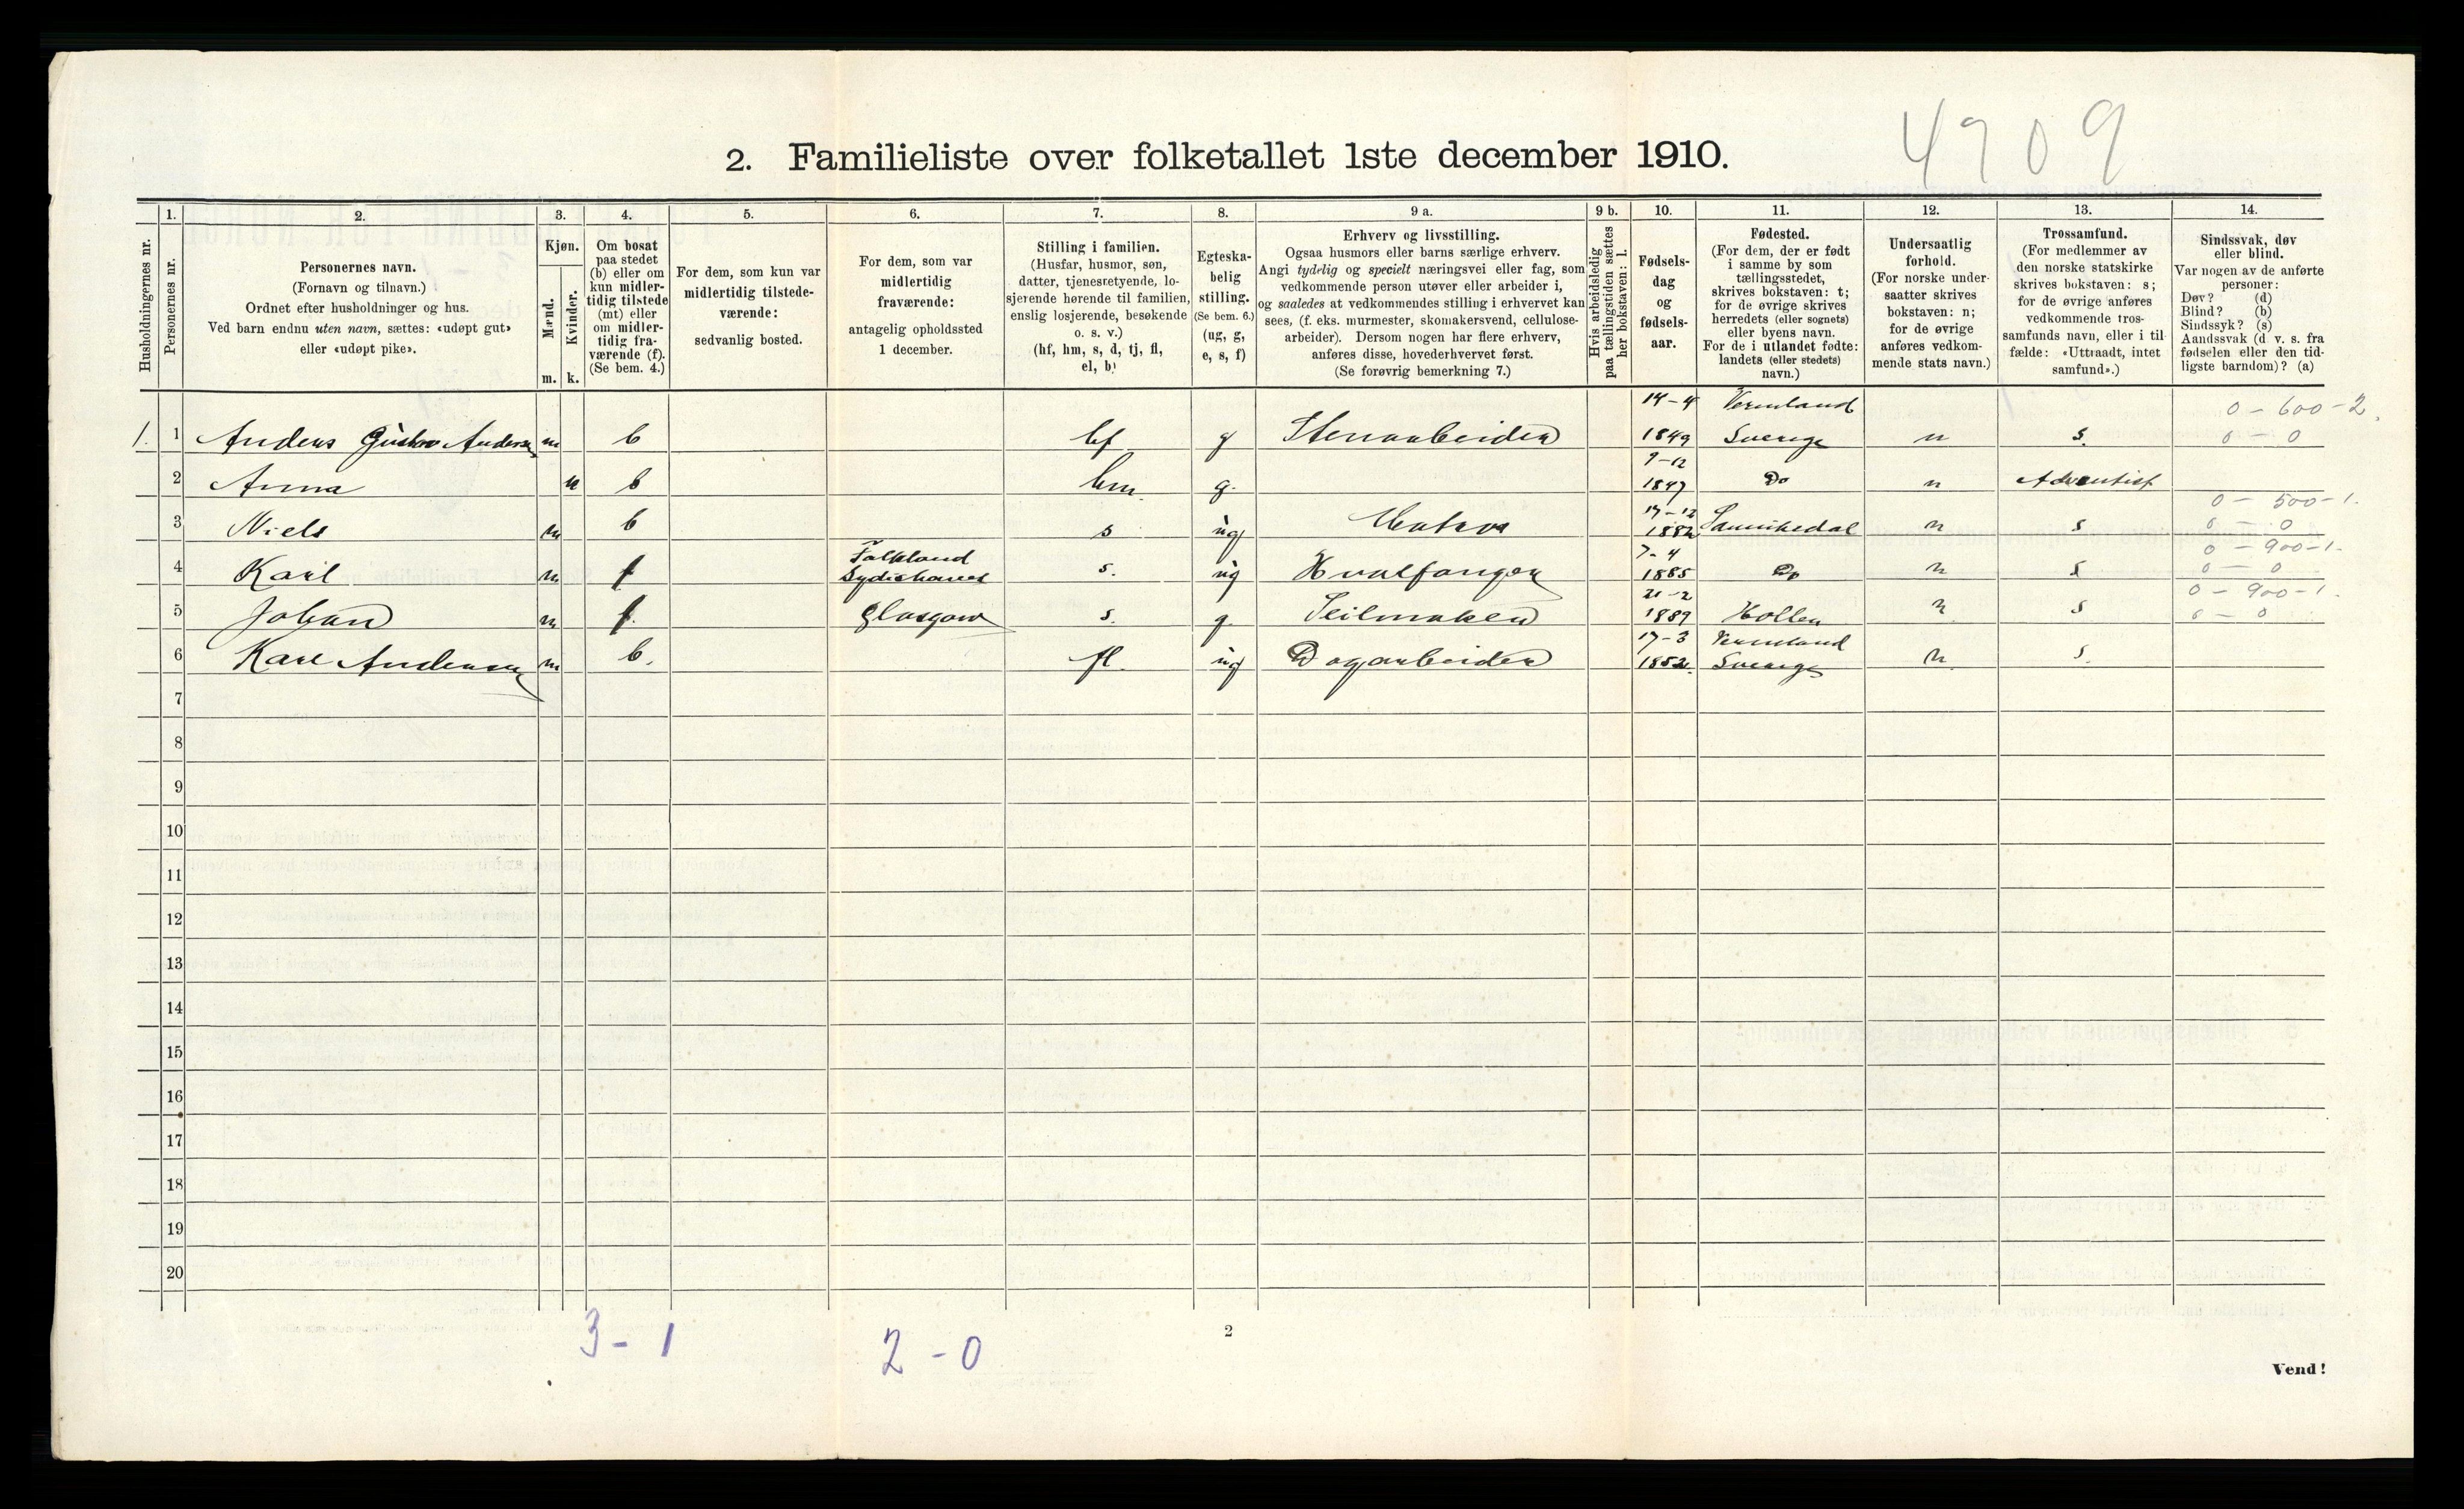 4709
2. Familieliste over folketallet 1ste december 1910.
Husholdningernes nr.
1.
Personernes nr.
2.
Personernes navn.
(Fornavn og tilnavn.)
Ordnet efter husholdninger og hus.
Ved barn endnu uten navn, sættes: «udøpt gut»
eller «udøpt pike».
3.
Kjøn.
Mænd.
Kvinder.
m. k.
4.
Om bosat
paa stedet
(b) eller om
kun midler-
tidig tilstede
(mt) eller
om midler-
tidig fra-
værende (f).
(Se bem. 4.)
5.
For dem, som kun var
midlertidig tilstede-
værende:
sedvanlig bosted.
6.
For dem, som var
midlertidig
fraværende:
antagelig opholdssted
1 december.
7.
Stilling i familien.
(Husfar, husmor, søn,
datter, tjenestetyende, lo-
sjerende hørende til familien,
enslig losjerende, besøkende
o. s. v.)
(hf, hm, s, d, tj, fl,
el, b)
8.
Egteska-
belig
stilling.
(Se bem. 6.)
(ug, g,
e, s, f)
9 a.
Erhverv og livsstilling.
Ogsaa husmors eller barns særlige erhverv.
Angi tydelig og specielt næringsvei eller fag, som
vedkommende person utøver eller arbeider i,
og saaledes at vedkommendes stilling i erhvervet kan
sees, (f. eks. murmester, skomakersvend, cellulose-
arbeider). Dersom nogen har flere erhverv,
anføres disse, hovederhvervet først.
(Se forøvrig bemerkning 7.)
9 b.
Hvis arbeidsledig
paa tællingstiden sættes
her bokstaven: l.
10.
Fødsels-
dag
og
fødsels-
aar.
11.
Fødested.
(For dem, der er født
i samme by som
tællingsstedet,
skrives bokstaven: t;
for de øvrige skrives
herredets (eller sognets)
eller byens navn.
For de i utlandet fødte:
landets (eller stedets)
navn.)
12.
Undersaatlig
forhold.
(For norske under-
saatter skrives
bokstaven: n;
for de øvrige
anføres vedkom-
mende stats navn.)
13.
Trossamfund.
(For medlemmer av
den norske statskirke
skrives bokstaven: s;
for de øvrige anføres
vedkommende tros-
samfunds navn, eller i til-
fælde: «Uttraadt, intet
samfund».)
14.
Sindssvak, døv
eller blind.
Var nogen av de anførte
personer:
Døv? (d)
Blind? (b)
Sindssyk? (s)
Aandssvak (d v. s. fra
fødselen eller den tid-
ligste barndom)? (a)
14-4 Vermland 0-600-2.
1. 1 Anders Gustav Andersen m b hf g Stenarbeider 1849 Sverige n s. 0-0
9-12
2 Anna k b hm g. 1847 Do n Adventist
17-12 0-500-1.
3 Niels m b s ug Matros 1882 Sannikedal n s 0-0
Falkland 7-4 0-900-1.
4 Karl m f Sydishavet s. ug Hvalfanger 1885 Do n s 0-0
21-2 0-900-1.
5 Johan m f. Glasgow s. g. Seilmaker 1889 Hollen n s 0-0
17-3 Vermland
6 Karl Andersen m b. fl. ug Dagarbeider 1852. Sverige n. s.
7
8
9
10
11
12
13
14
15
16
17
18
19
20
3-1 2-0
2
Vend!